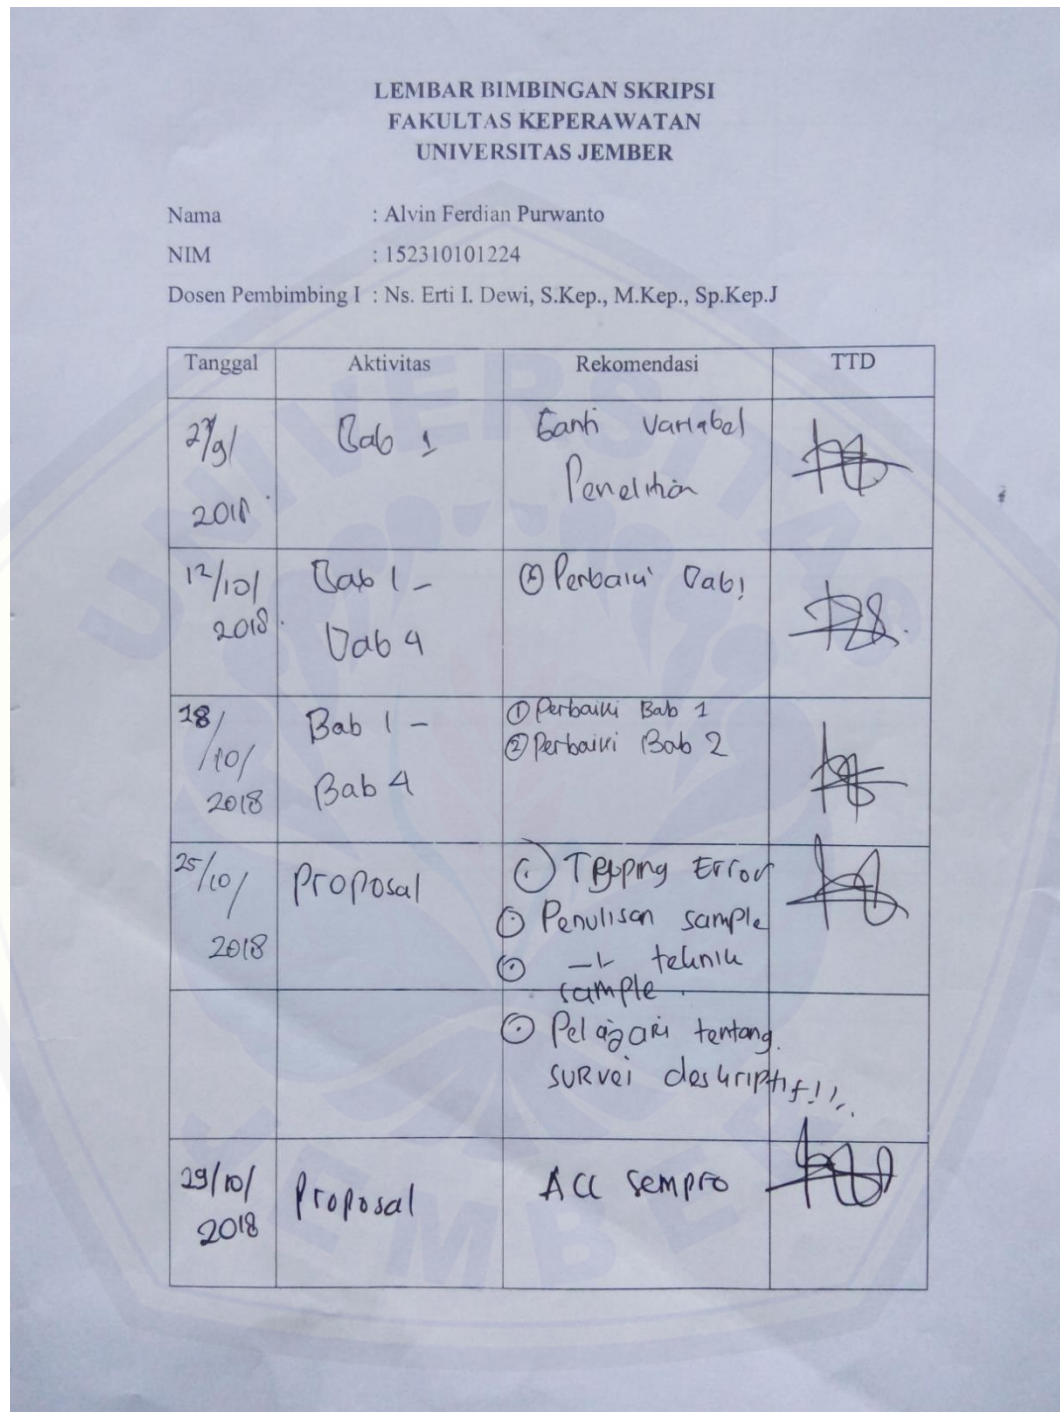 LEMBAR BIMBINGAN SKRIPSI
FAKULTAS KEPERAWATAN
UNIVERSITAS JEMBER
Nama : Alvin Ferdian Purwanto
NIM : 152310101224
Dosen Pembimbing I : Ns. Erti I. Dewi, S.Kep., M.Kep., Sp.Kep.J
Tanggal Aktivitas Rekomendasi TTD
27/9/ Bab 1 Ganti Variabel
2018 Penelitian
12/10/ Bab 1 - Perbaiki Bab 1
2018 Bab 4
18/ Bab 1 - ① Perbaiki Bab 1
/10/ ② Perbaiki Bab 2
2018 Bab 4
25/10/ Proposal Typing Error
Penulisan sample
2018 teknik
sample
Pelajari tentang
survei deskriptif!!!
29/10/ Proposal ACC sempro
2018
UNIVERSITAS
JEMBER